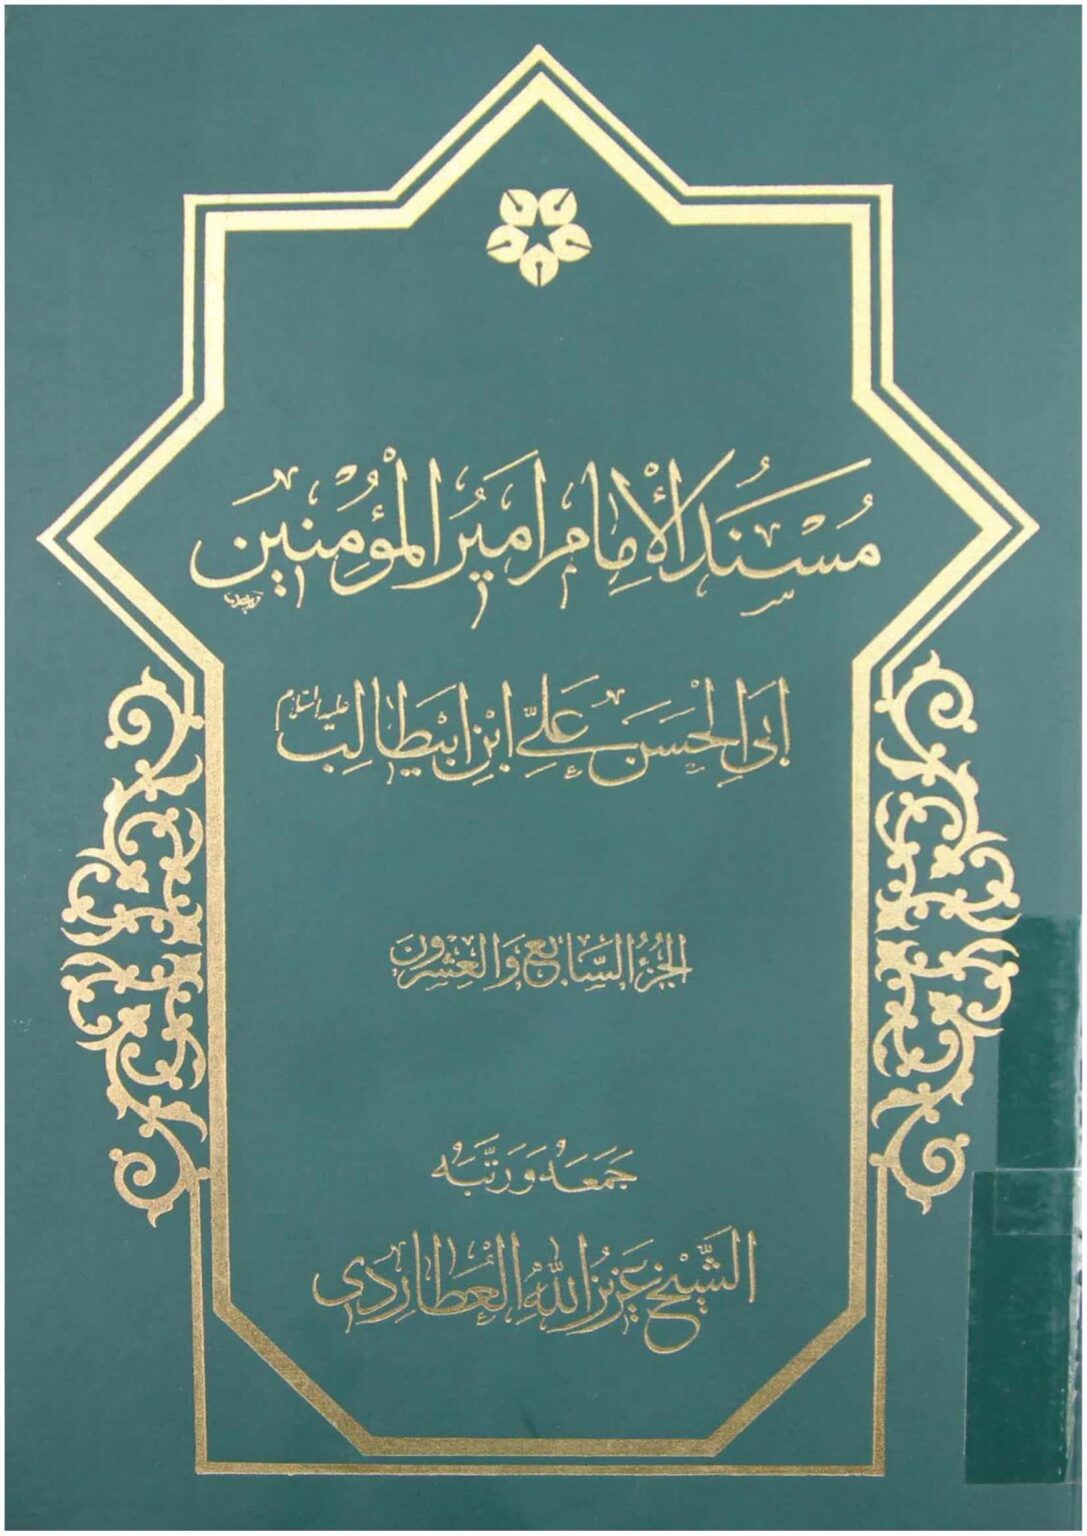 مُسْنَدُ الْإِمَامِ أَمِيرِ الْمُؤْمِنِين
أَبِي الْحَسَن عَلِيِّ ابْنِ ابيطَالِب عليه السلام
الجُزءُ السَّابِع وَالعِشرون
جَمَعَه وَرَتَّبَه
الشَّيْخ عَزِيزُ اللهِ الْعُطَارِدِي